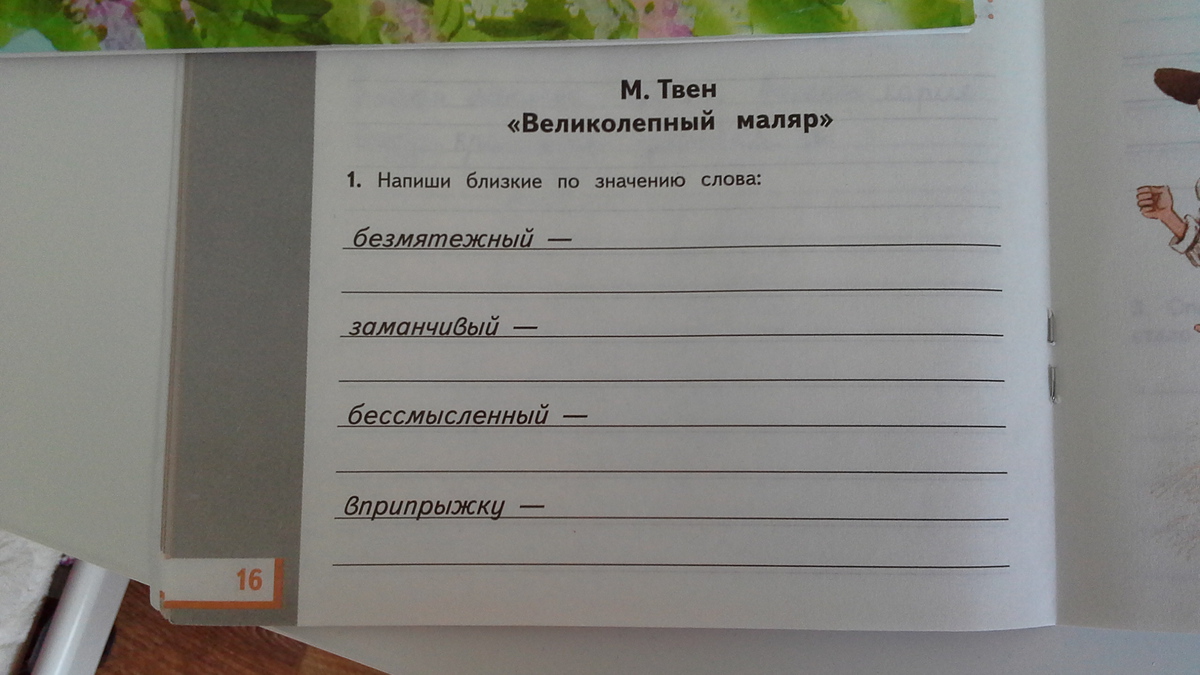 М. Твен
«Великолепный маляр»
1. Напиши близкие по значению слова:
безмятежный —
заманчивый —
бессмысленный —
вприпрыжку —
16